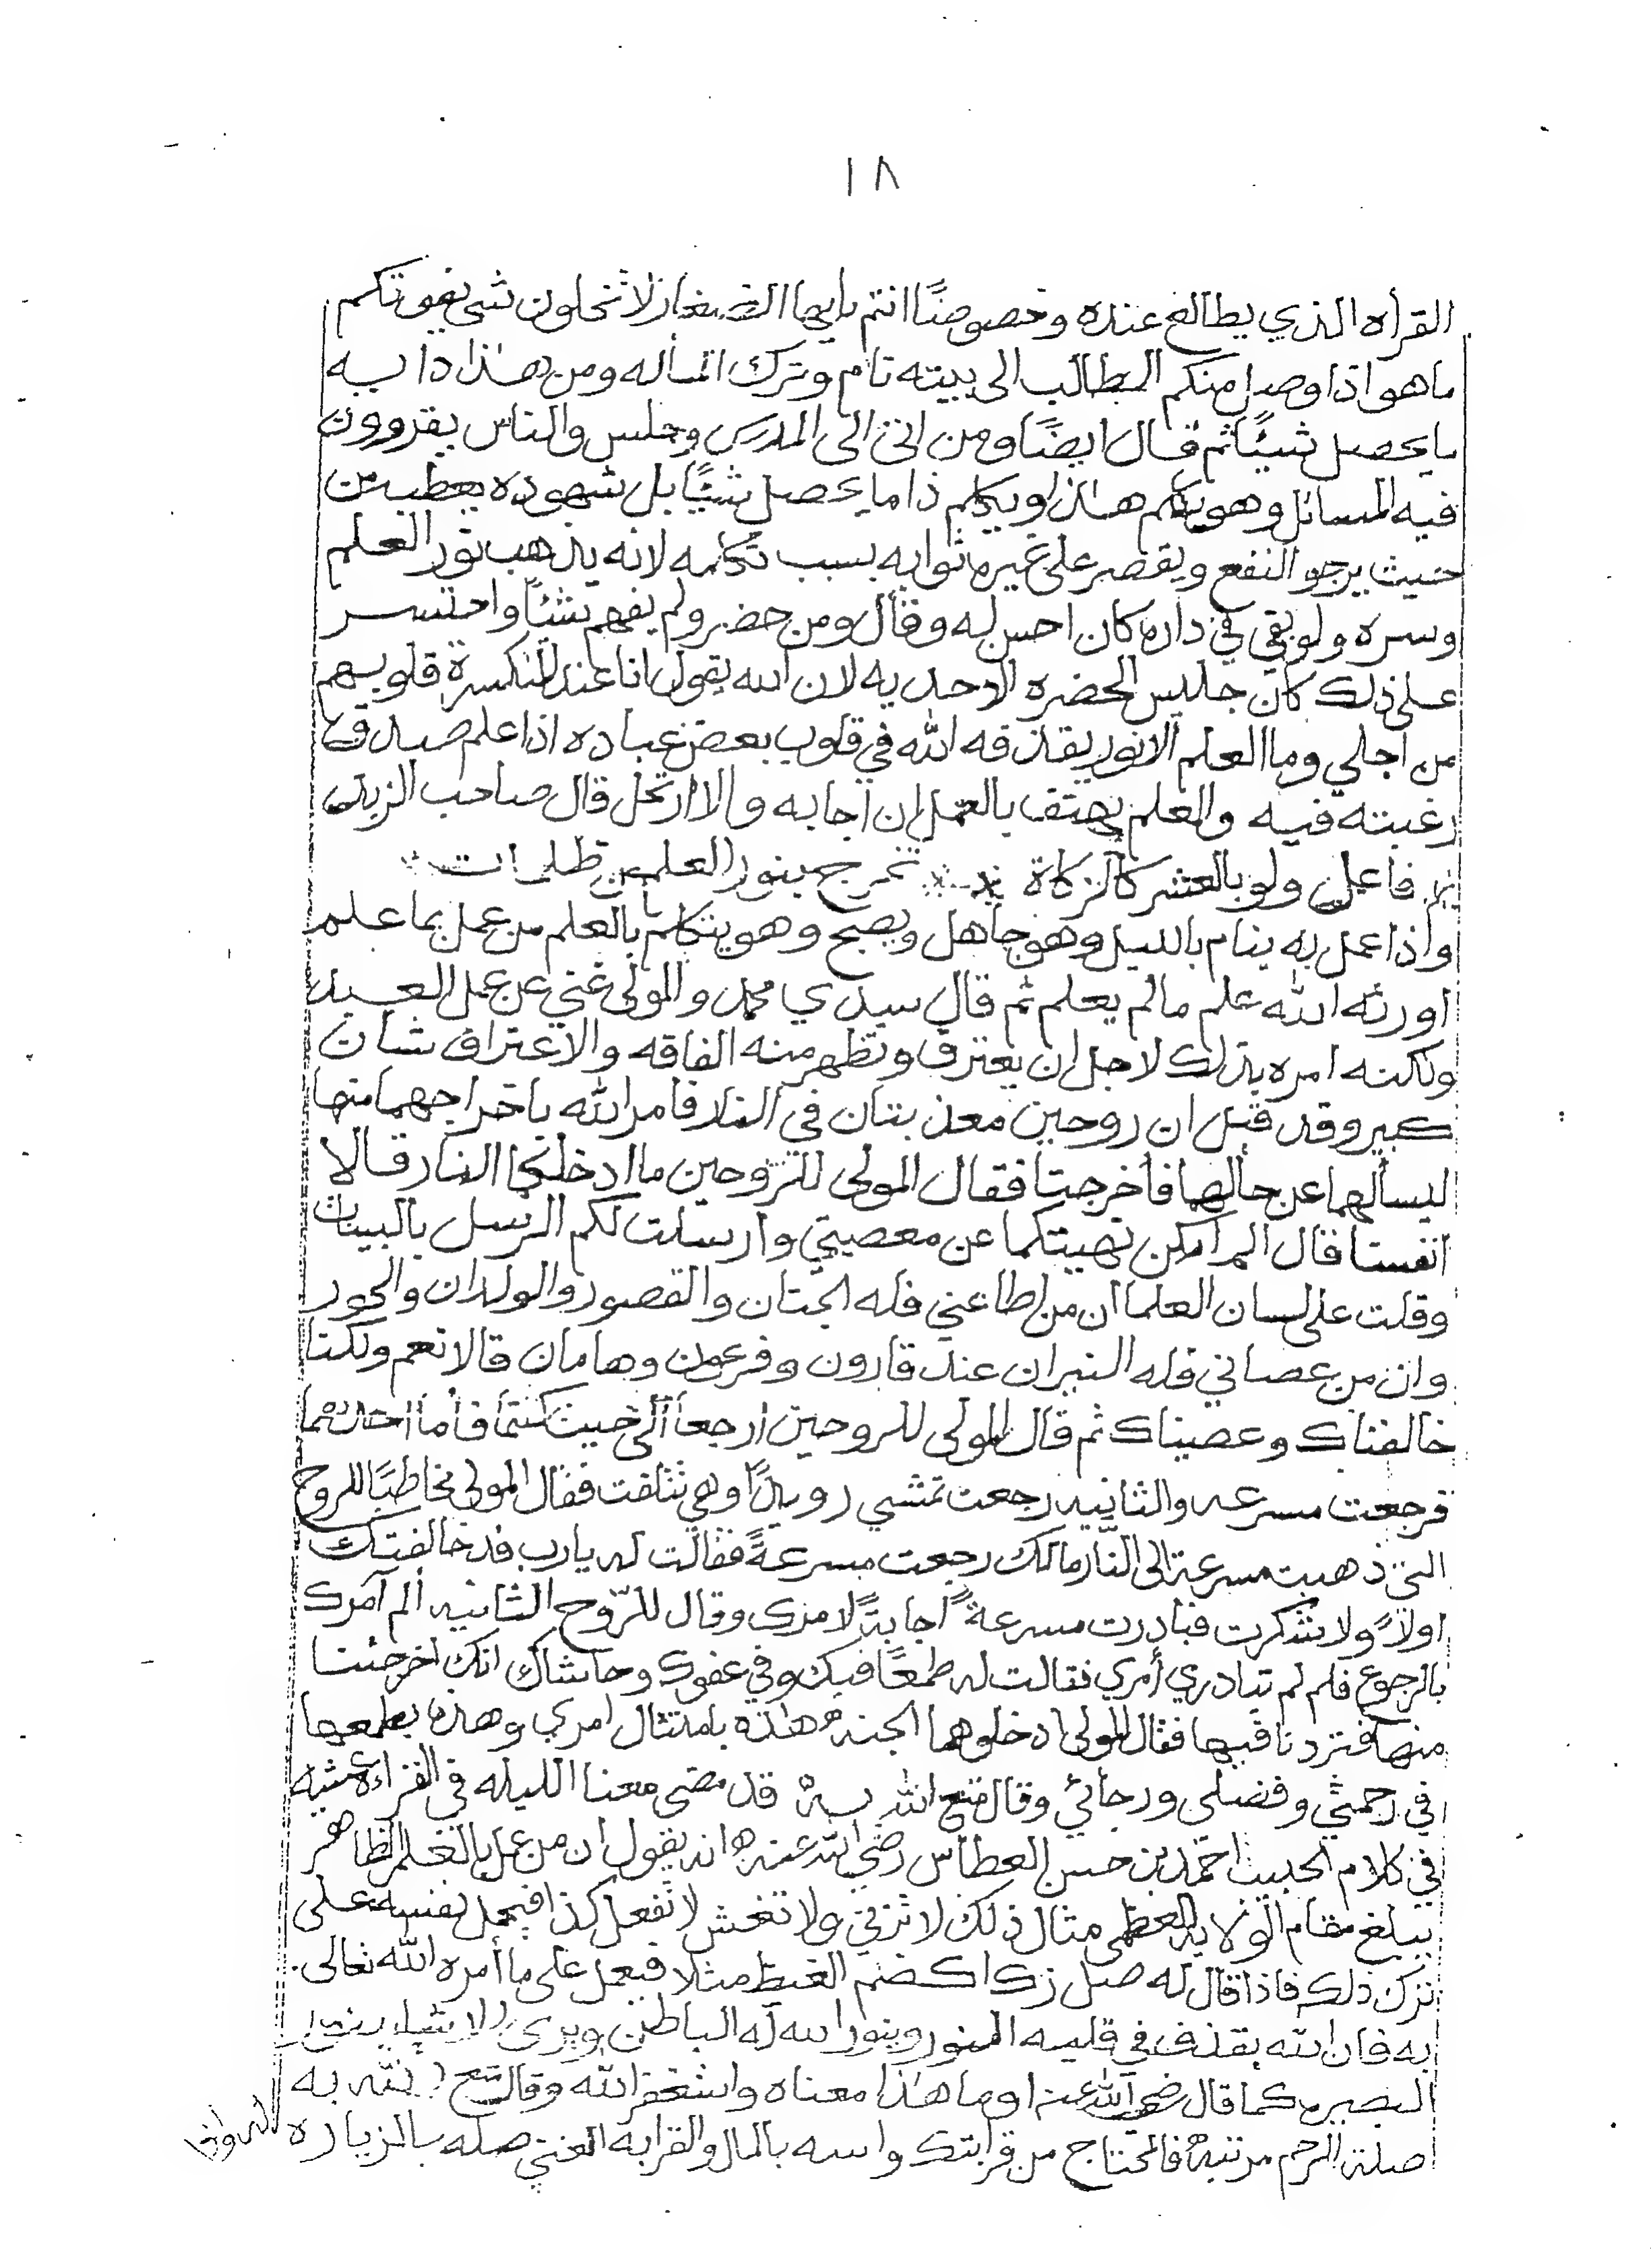 ١٨
القرأه الذي يطالع عنده وخصوصًا انتم يا ايها الصغار لا تخلون شي يفوتكم
ما هو اذا وصل منكم الطالب الى بيته نام وترك المسأله ومن هذا دابه
ما يحصل شيئًا ثم قال ايضًا ومن اتى الى المدرس وجلس والناس يقروون
فيه المسائل وهو يكلم هذا ويكلم ذا ما يحصل شيئًا بل شهوده يعطب من
حيث يرجو النفع ويقصر على غيره ثوابه بسبب تكلمه لانه يذهب نور العلم
وسره ولو بقي في داره كان احسن له وقال ومن حضر ولم يفهم شيئًا واحتسر
على ذلك كان جليس الحضره الاحديه لان الله يقول انا عند المنكسرة قلوبهم
من اجلي وما العلم الا نور يقذفه الله في قلوب بعض عباده اذا علم صدق
رغبته فيه والعلم يهتف بالعمل ان اجابه والا ارتحل قال صاحب الزبد
فاعمل ولو بالعشر كالزكاة تخرج بنور العلم من ظلمات
واذا عمل به ينام بالليل وهو جاهل ويصبح وهو يتكلم بالعلم من عمل بما علم
اورثه الله علم ما لم يعلم ثم قال سيدي محمد والمولى غني عن عمل العبيد
ولكنه امره بذلك لاجل ان يعترف وتظهر منه الفاقه والاعتراف شأن
كبير وقد قيل ان روحين معذبتان في النار فامر الله باخراجهما منها
ليسألهما عن حالهما فأخرجتا فقال المولى للروحين ما ادخلكما النار قالا
انفسنا قال الم اكن نهيتكما عن معصيتي وارسلت لكم الرسل بالبينات
وقلت على لسان العلما ان من اطاعني فله الجنان والقصور والولدان والحور
وان من عصاني فله النيران عند قارون وفرعون وهامان قالا نعم ولكنا
خالفناك وعصيناك ثم قال المولى للروحين ارجعا الى حيث كنتما فأما احداهما
فرجعت مسرعه والثانيه رجعت تمشي رويدًا وهي تتلفت فقال المولى مخاطبًا للروح
التي ذهبت مسرعة الى النار مالك رجعت مسرعةً فقالت له يارب قد خالفتك
اولاً ولا تذكرت فبادرت مسرعة اجابةً لامرك وقال للروح الثانيه ألم آمرك
بالرجوع فلم لم تبادري أمري فقالت له طمعًا فيك وفي عفوك وحاشاك انك اخرجتنا
منها فتردنا فيها فقال المولى ادخلوهما الجنه هذه بامتثال امري وهذه بطمعها
في رحمتي وفضلي ورجائي وقال متع الله به قد مضى معنا الليله في القراءه عشيه
في كلام الحبيب احمد بن حسن العطاس رضي الله عنه انه يقول ان من عمل بالعلم الظاهر
يبلغ مقام الولايه العظمى مثال ذلك لا تزني ولا تغش لا تفعل كذا فيحمل نفسه على
ترك ذلك فاذا قال له صل زك اكضم الغيظ مثلا فيعمل على ما أمره الله تعالى
به فان الله يقذف في قلبه النور وينور الله له الباطن ويرى الاشياء بنور
البصيره كما قال رضي الله عنه او ما هذا معناه واستغفر الله وقال متع الله به
صلة الرحم مرتبه فالمحتاج من قرابتك واسه بالمال والقرابه الغني صله بالزياره